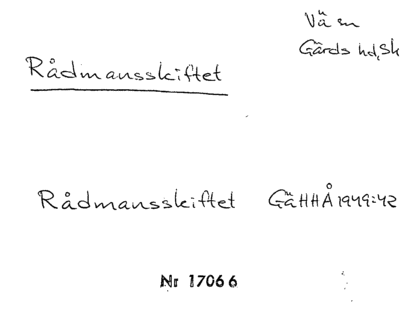 Vä sn
Gärds hd, Sk
Rådmansskiftet
Rådmansskiftet GäHHÅ 1949:42
Nr 17066